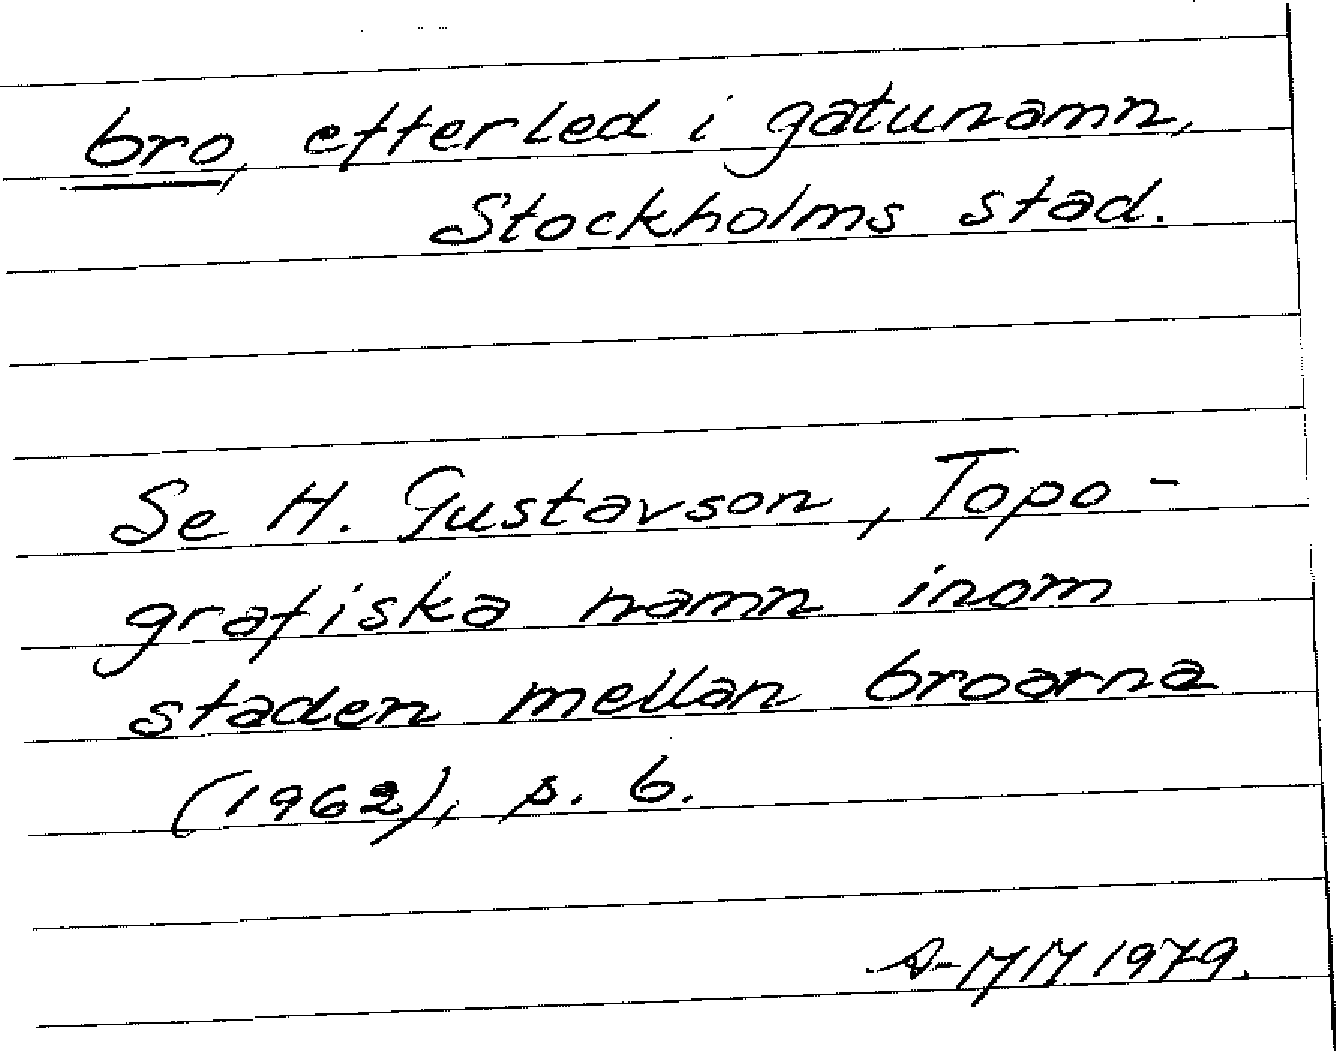 bro, efterled i gatunamn,
Stockholms stad.
Se H. Gustavson, Topo-
grafiska namn inom
staden mellan broarna
(1962), s. 6.
A-MM 1979.